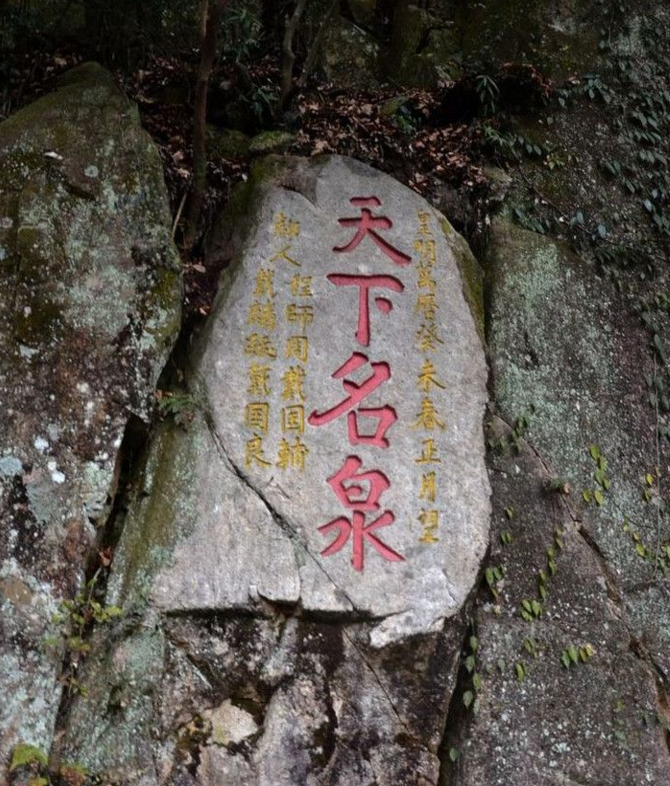 皇明萬曆癸未春正月望
天下名泉
郡人
程師周戴國輪
戴戴國良